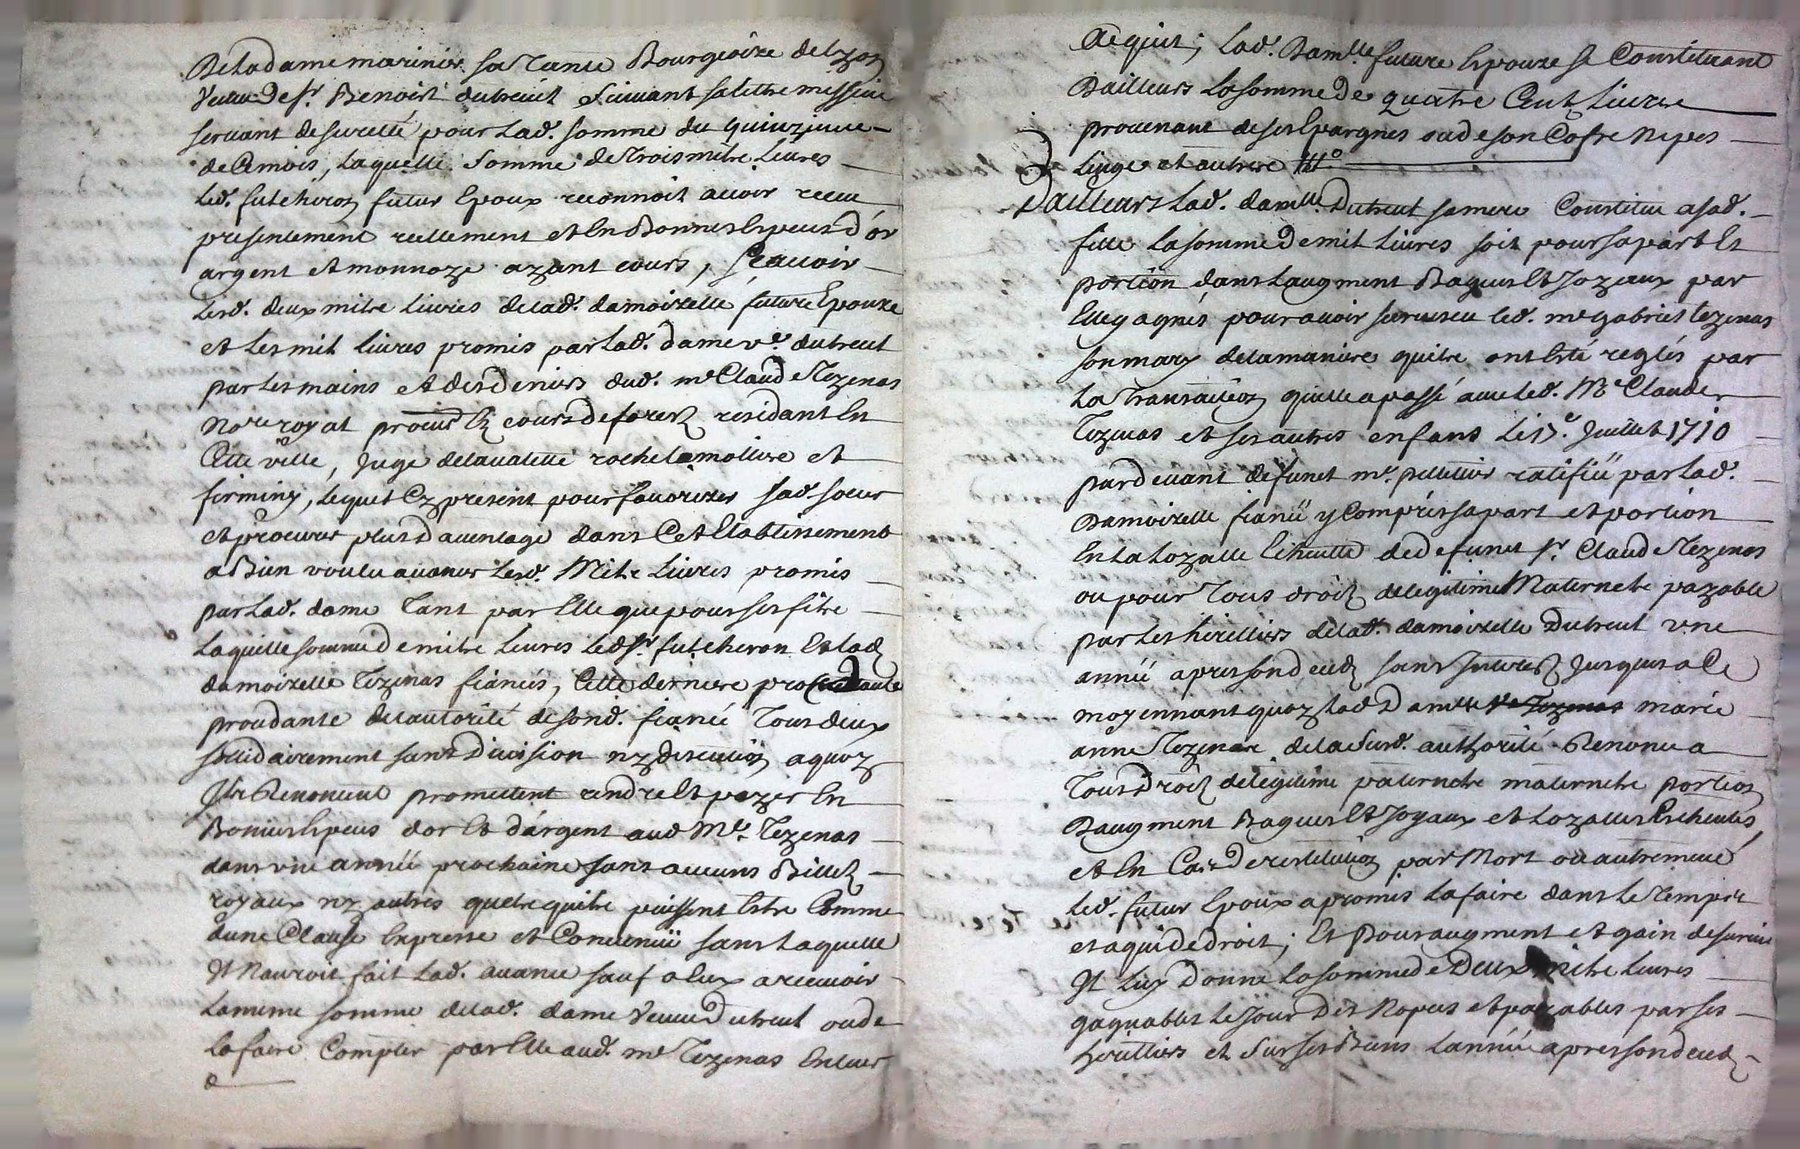 De la dame marinier sa Tante Bourgeoize de Lyon
Veuve De sr. Benoist dutreuil suivant sa lettre missive
servant de sureté pour lad. somme du quinzieme
de Cemois, laquelle somme de Trois mitre Livres
led. futcheron futur Epoux reconnoit avoir receu
presentement reellement et En Bonnes Especes d'or
argent et monnoze azant cours, Scavoir
Lesd. deux mitre livres de lad. damoizelle future Epouze
et Les mil livres promis par Lad. dame ve. dutreul
par Les mains et des deniers dud. me Claude Tezenas
Nore royal procur Ez cours de forez residant En
Cette ville, juge de lavalette roche la moliere et
firminy, lequel Cy present pour favorizer sad. soeur
et procurer plus d'aventage dans Cet Etablissement
a Bien voulu avancer Lesd. Mitre Livres promis
par Lad. dame Tant par Elle que pour ses fitre
Laquelle somme de mitre livres Led sr. futcheron Et lad
damoizelle Tezenas fiancés, Cette derniere
proudante de lautorité de sond. fiancé Tous deux
sollidairement sans Division ny discution a quoy
Ils Renoncent promettent rendre Et pazer En
Bonnes Especes dor Et d'argent aud Me. Tezenas
dans une année prochaine sans aucuns Billetz
royaux ny autres quelre quitre puissent Estre Comme
dune Clause Expresse et Convenuë sans Laquelle
Il N'auroit fait Lad. avance sauf a Eux a recevoir
La meme somme de lad. dame Veuve Dutreul ou de
La faire Compter par Elle aud. me Tezenas En leur
Acquit; Lad. Damlle. future Epouze se Constituant
D'ailleurs La somme De quatre Cent Livres
provenant de ses Epargnes ou de son Cofre Nipes
Linge et autres
D'ailleurs Lad. damlle. Dutreul sa mere Constitue a sad.
fille La somme De mil Livres soit pour sa part Et
portion dans Laugment Bagues Et Jozeaux par
Elle gagnés, pour avoir survescu led. me gabriel tezenas
son mary de la maniere quitre ont Esté reglés par
La Transaction quelle a passé avec led. Me Claude
Tezenas et ses autres enfans Le 17e. Juillet 1710
par devant defunct me. pelletier ratifiée par Lad.
Damoizelle fiancée y Compris sa part et portion
En La Lozalle Echeutte de defunct sr. Claude Tezenas
ou pour Tous droitz de legitime Maternetre pazable
par Les heritiers de lad. damoizelle Dutreul une
année apres son deced sans Interest jusques a Ce
moyennant quoy lad Damlle marie
anne Tezenas de la susd. authorité Renonce a
Tous Droitz de legitime paternetre maternetre portion
D'augment Bagues Et Joyaux et Lozalles Echeutes,
et En Cas De restitution par Mort ou autrement
Led. futur Epoux a promis La faire dans Le Temps
et a qui de droit; Et Pour augment et gain de survie
Il luy Donne La somme de Deux mitre Livres
gagnables le Jour Des Nopces et pazables par ses
heritiers et sur ses Biens L'année apres son deced